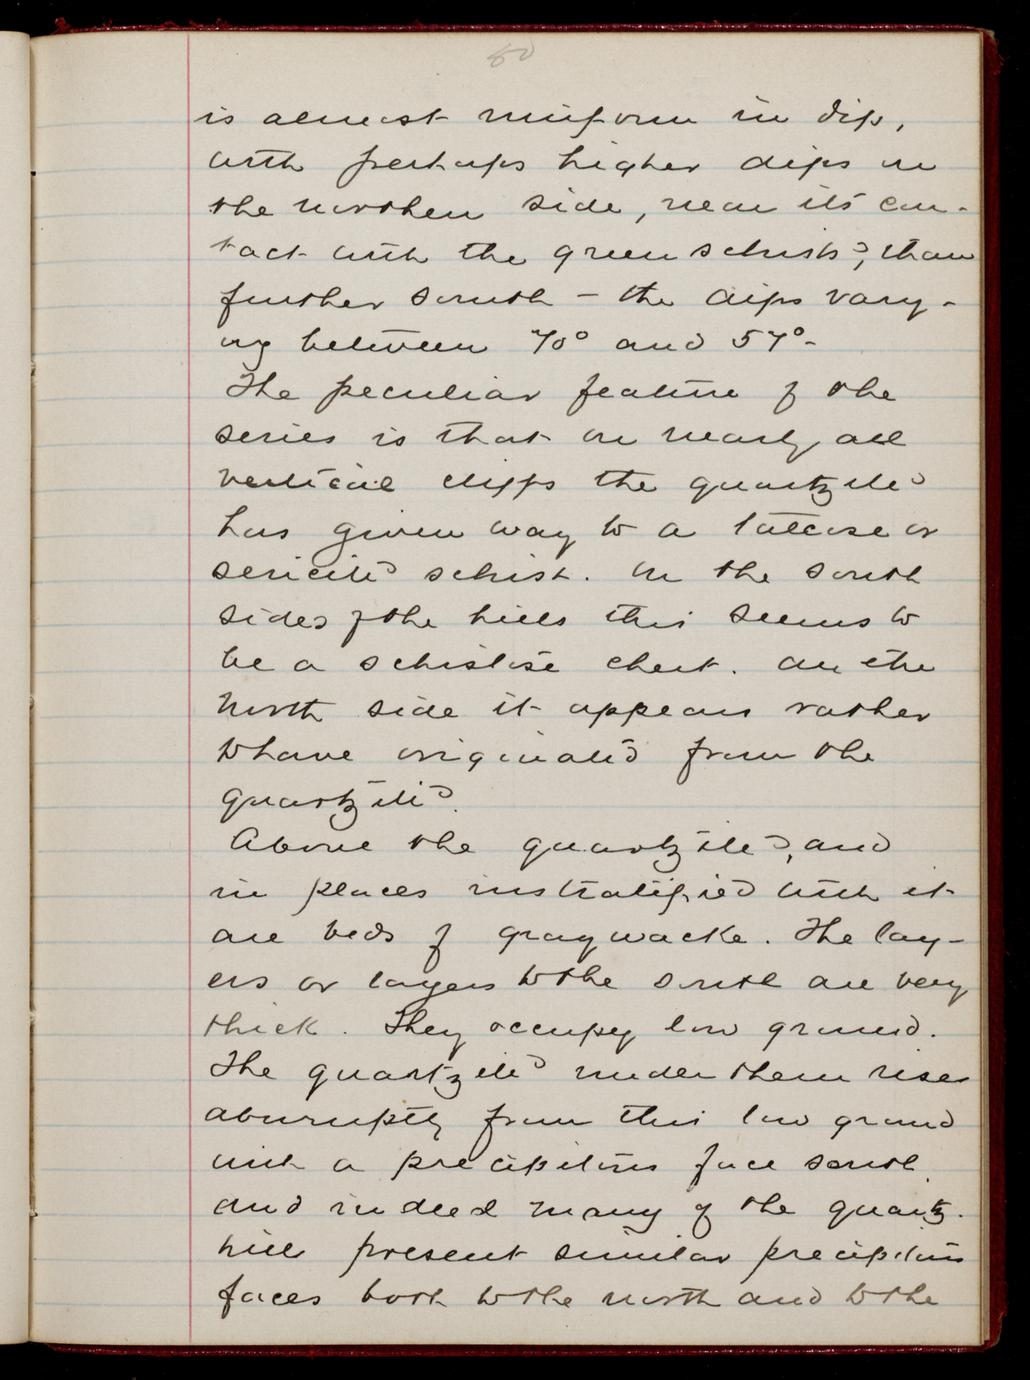 50
is almost uniform in dip,
with perhaps higher dips on
the northern side, near its con-
tact with the green schists, than
further south - the dips vary-
ing between 70° and 57°-
The peculiar feature of the
series is that on nearly all
vertical cliffs the quartzite
has given way to a talcose or
sericite schist. On the south
sides of the hills this seems to
be a schistose chert. On the
north side it appears rather
to have originated from the
quartzite.
Above the quartzite, and
in places instratified with it
are beds of graywacke. The lay-
ers or layers to the south are very
thick. They occupy low ground.
The quartzite under them rises
aburuptly from this low ground
with a precipitous face south
and indeed many of the quartz.
hill present similar precipitous
faces both to the north and to the